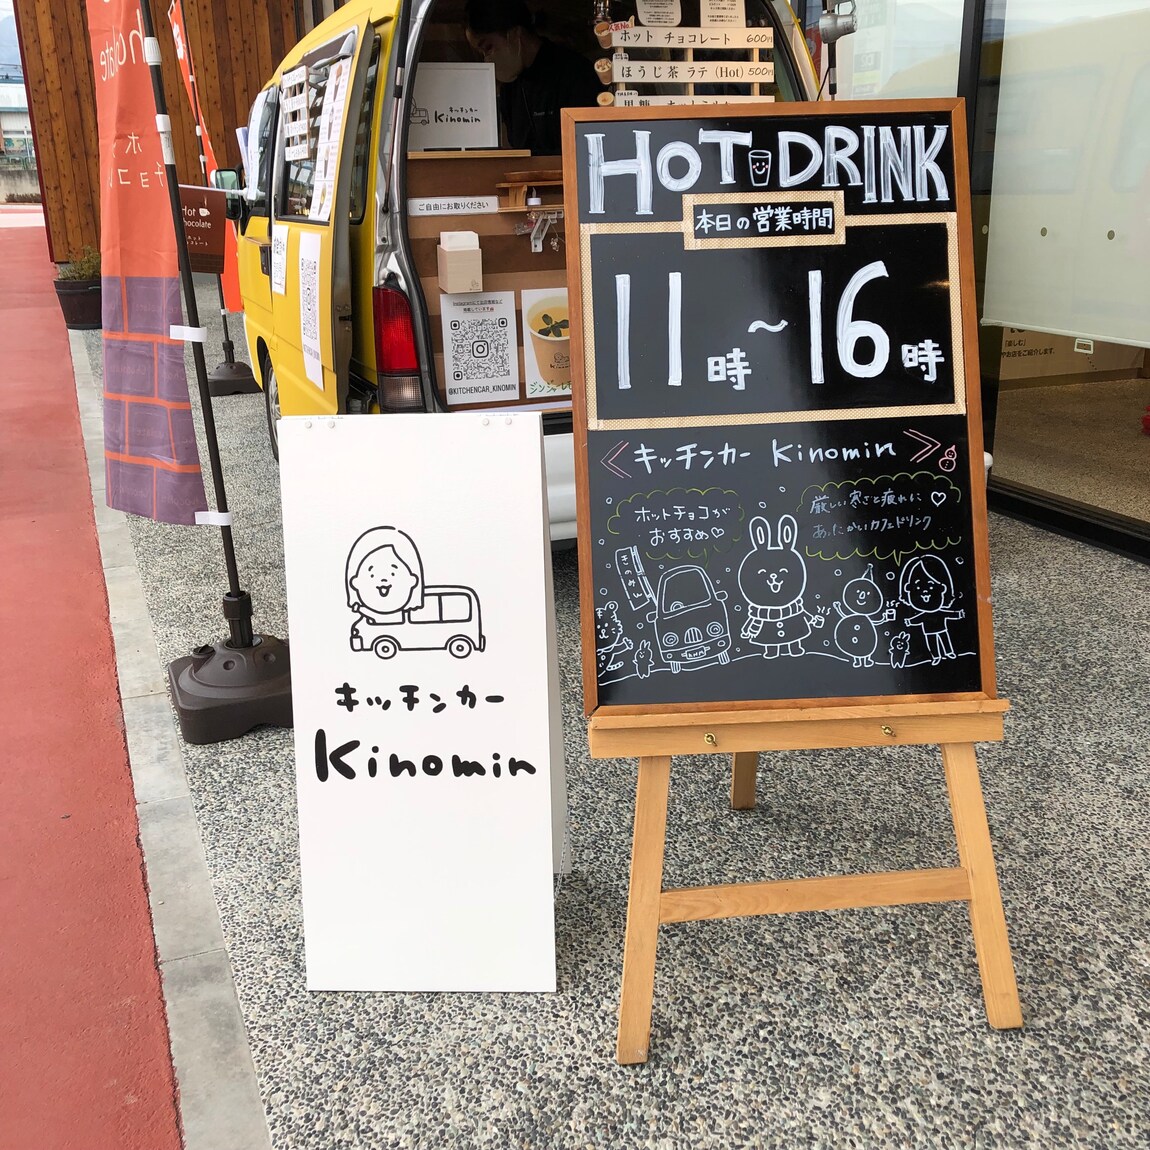 ホット チョコレート 600円
ほうじ茶 ラテ (Hot) 500円
キッチンカー
Kinomin
ご自由にお取りください
Hot
chocolate
@KITCHENCAR_KINOMIN
HOT DRINK
本日の営業時間
11時〜16時
キッチンカー Kinomin
ホットチョコが
おすすめ♡
厳しい寒さと疲れに♡
あったかいカフェドリンク
きのみん
キッチンカー
Kinomin